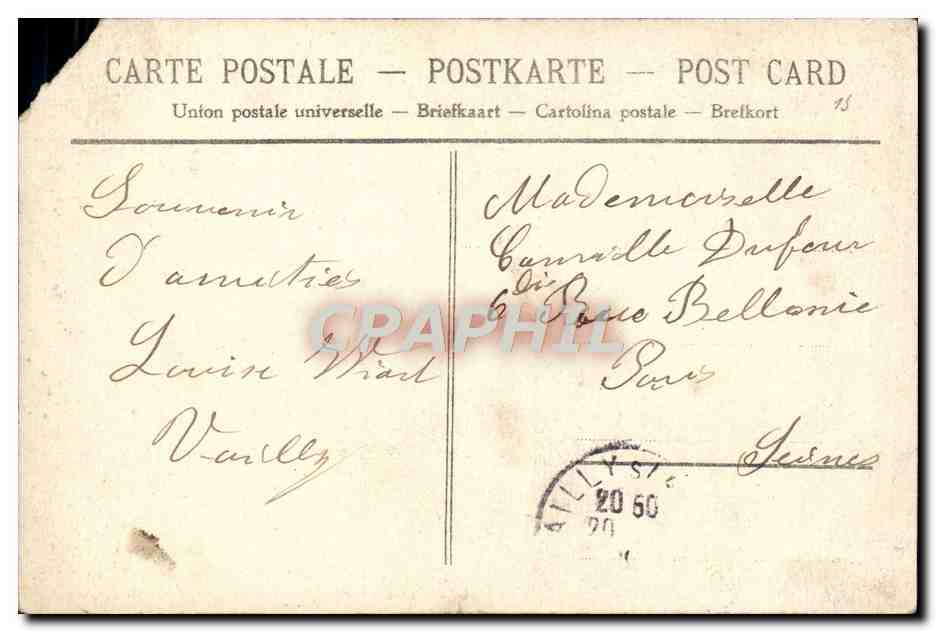 CARTE POSTALE — POSTKARTE — POST CARD
Union postale universelle — Briefkaart — Cartolina postale — Brefkort
15
Souvenir
D'amitiés
Louise Viard
Vailly
Mademoiselle
Camille Dufour
6 bis Roue Bellonie
Paris
Seines
AILLY S/
20 50
20
CPAPHIL